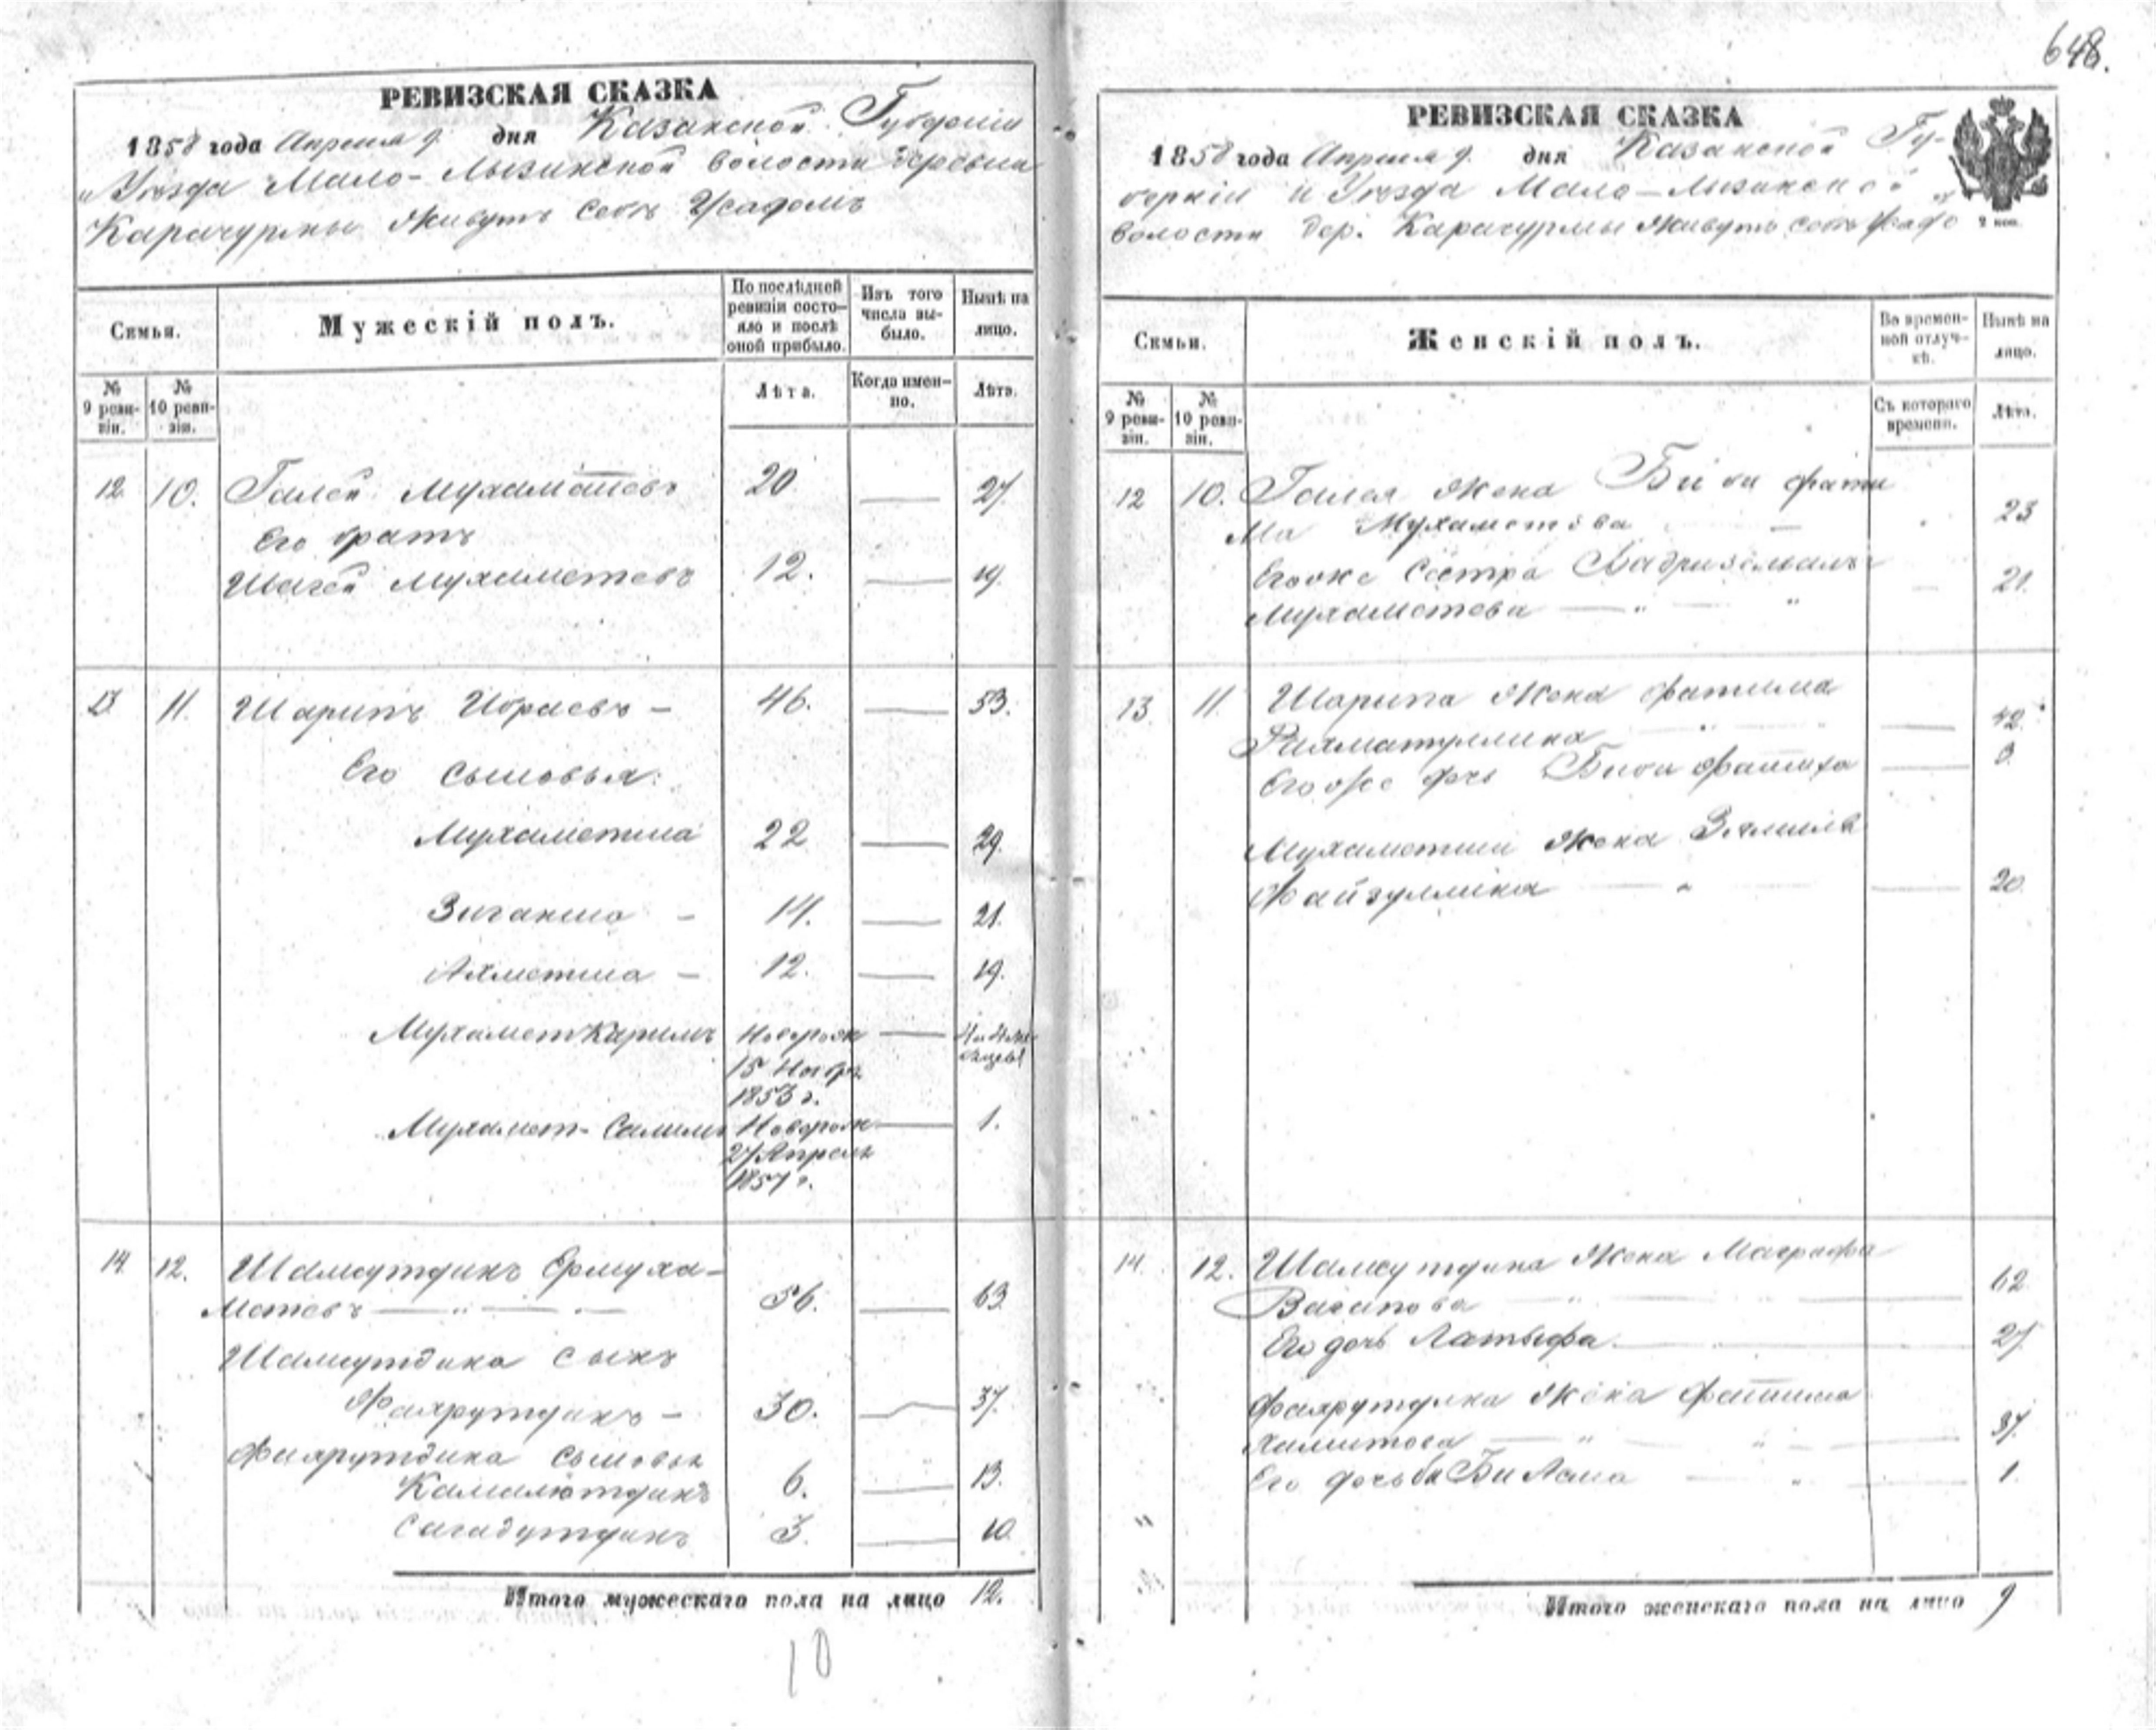 648.
РЕВИЗСКАЯ СКАЗКА
1858 года Апреля 9. дня Казанской Губерніи
и Уѣзда Мало-Лызинской волости деревни
Карачурмы Живутъ собъ
Семьи.
Мужескій полъ.
По послѣдней ревизіи состояло и послѣ оной прибыло.
Изъ того числа выбыло.
Нынѣ на лицо.
№ 9 ревизіи.
№ 10 ревизіи.
Лѣта.
Когда именно.
Лѣта.
12. 10. Галей Мухаметевъ 20 — 27.
Его братъ
Шагей Мухаметевъ 12. — 19.
13. 11. Шарипъ Ибраевъ — 46. — 53.
Его сыновья:
Мухаметша 22 — 29.
Зиганша — 14. — 21.
Ахметша — 12. — 19.
Мухаметкаримъ Новорож — 4 и 4 мѣ
сяцевъ
15 Ноябр.
1853 г.
Мухамет-Салимъ Новорож — 1.
27 Апреля
1857 г.
14. 12. Шамсутдинъ Ермуха-
метевъ — " — 56. — 63.
Шамсутдина сынъ
Фахрутдинъ — 30. — 37.
Фахрутдина сыновья
Камалютдинъ 6. — 13.
Сагадутдинъ 3. — 10.
Итого мужескаго пола на лицо 12.
10
РЕВИЗСКАЯ СКАЗКА
1858 года Апреля 9. дня Казанской Гу-
берніи и Уѣзда Мало-Лызинской
волости дер. Карачурмы Живутъ собъ
2 коп.
Семьи.
Женскій полъ.
Во временной отлучкѣ.
Нынѣ на лицо.
№ 9 ревизіи.
№ 10 ревизіи.
Съ котораго времени.
Лѣта.
12 10. Галея жена Биби Фати
ма Мухаметева — 23
Его же сестра Бадризямалъ
Мухаметева — " — " — 21.
13. 11. Шарипа жена Фатима
Рахматуллина — 42.
Его же дочь Биби Фатиха — 3.
Мухаметши жена Зямиля
Файзуллина — " — 20.
14. 12. Шамсутдина жена Маграфа
Вагапова — " — 62
Его дочь Латыфа — 27.
Фахрутдина жена Фатима
Хамитова — " — 37.
Его дочь Би Асма — " — 1.
Итого женскаго пола на лицо 9